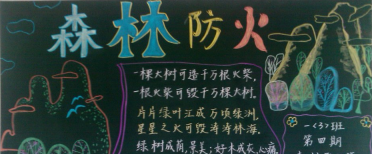 森林防火
一棵大树可造千万根火柴,
一根火柴可毁千万棵大树.
片片绿叶汇成万顷绿洲,
星星之火可毁涛涛林海.
绿树成荫,景美;好木成灰,心痛
一〈3〉班
第四期